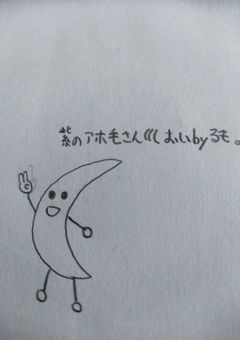 紫のアホ毛さん巛しおいbyるも。